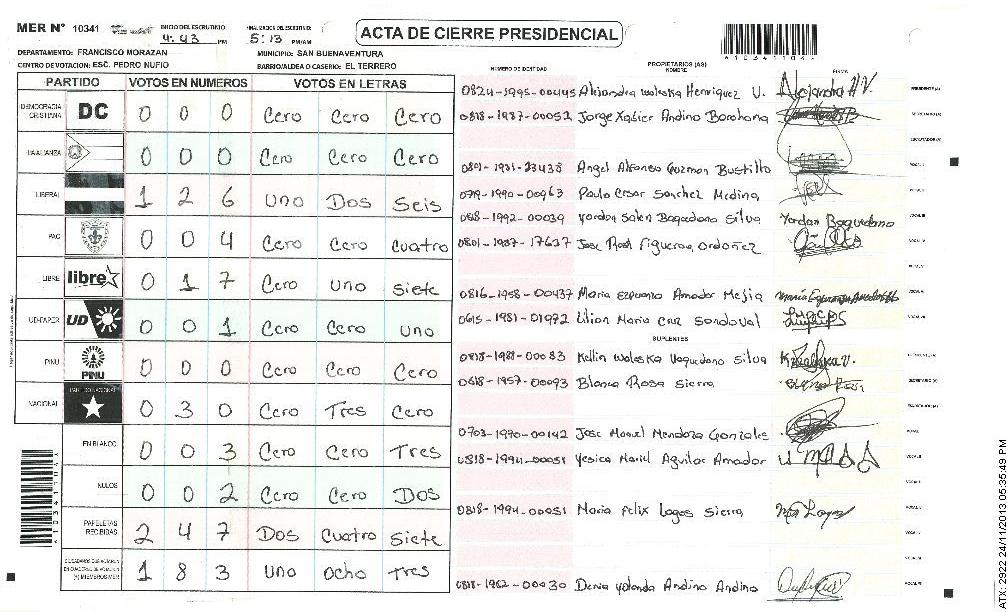 MER N° 10341
INICIO DEL ESCRUTINIO: 4:43 PM
FINALIZACION DEL ESCRUTINIO: 5:13 PM/AM
ACTA DE CIERRE PRESIDENCIAL
A103411042
DEPARTAMENTO: FRANCISCO MORAZAN
MUNICIPIO: SAN BUENAVENTURA
CENTRO DE VOTACION: ESC. PEDRO NUFIO
BARRIO/ALDEA O CASERIO: EL TERRERO
PARTIDO VOTOS EN NUMEROS VOTOS EN LETRAS
DEMOCRACIA CRISTIANA DC 0 0 0 Cero Cero Cero
LA ALIANZA 0 0 0 Cero Cero Cero
LIBERAL 1 2 6 Uno Dos Seis
PAC 0 0 4 Cero Cero Cuatro
LIBRE libre 0 1 7 Cero Uno Siete
UD-FAPER UD 0 0 1 Cero Cero Uno
PINU PINU 0 0 0 Cero Cero Cero
NACIONAL PARTIDO NACIONAL 0 3 0 Cero Tres Cero
EN BLANCO 0 0 3 Cero Cero Tres
NULOS 0 0 2 Cero Cero Dos
PAPELETAS RECIBIDAS 2 4 7 Dos Cuatro Siete
CIUDADANOS QUE VOTARON EN CUADERNO DE VOTACION (+) MIEMBROS MER 1 8 3 Uno Ocho Tres
NUMERO DE IDENTIDAD PROPIETARIOS (AS) NOMBRE FIRMA
0824-1995-00445 Alejandra Waleska Henriquez V. Alejandra H.V. PRESIDENTE (A)
0818-1987-00052 Jorge Xabier Andino Barahona SECRETARIO (A)
ESCRUTADOR (A)
0801-1981-23438 Angel Alfonso Guzman Bustillo VOCAL I
0719-1990-00963 Paulo Cesar Sanchez Medina VOCAL II
0818-1992-00039 Yordan Salen Baquedano Silva Yordan Baquedano VOCAL III
0801-1987-17637 Jose Raul Figueroa Ordoñez VOCAL IV
VOCAL V
0816-1958-00437 Maria Esperanza Amador Mejia VOCAL VI
0615-1981-01972 Lilian Maria Cruz Sandoval VOCAL VII
SUPLENTES
0818-1988-00083 Kellin Waleska Vaquedano Silva PRESIDENTE (A)
0618-1957-00093 Blanca Rosa Sierra SECRETARIO (A)
ESCRUTADOR (A)
0703-1970-00142 Jose Manuel Mendoza Gonzales VOCAL I
0818-1994-00051 Yesica Mariel Aguilar Amador VOCAL II
0818-1994-00051 Maria Felix Lagos Sierra VOCAL IV
0818-1962-00030 Denia Yolanda Andino Andino VOCAL VII
A103411042
ATX. 2922 24/11/2013 05:35:49 PM